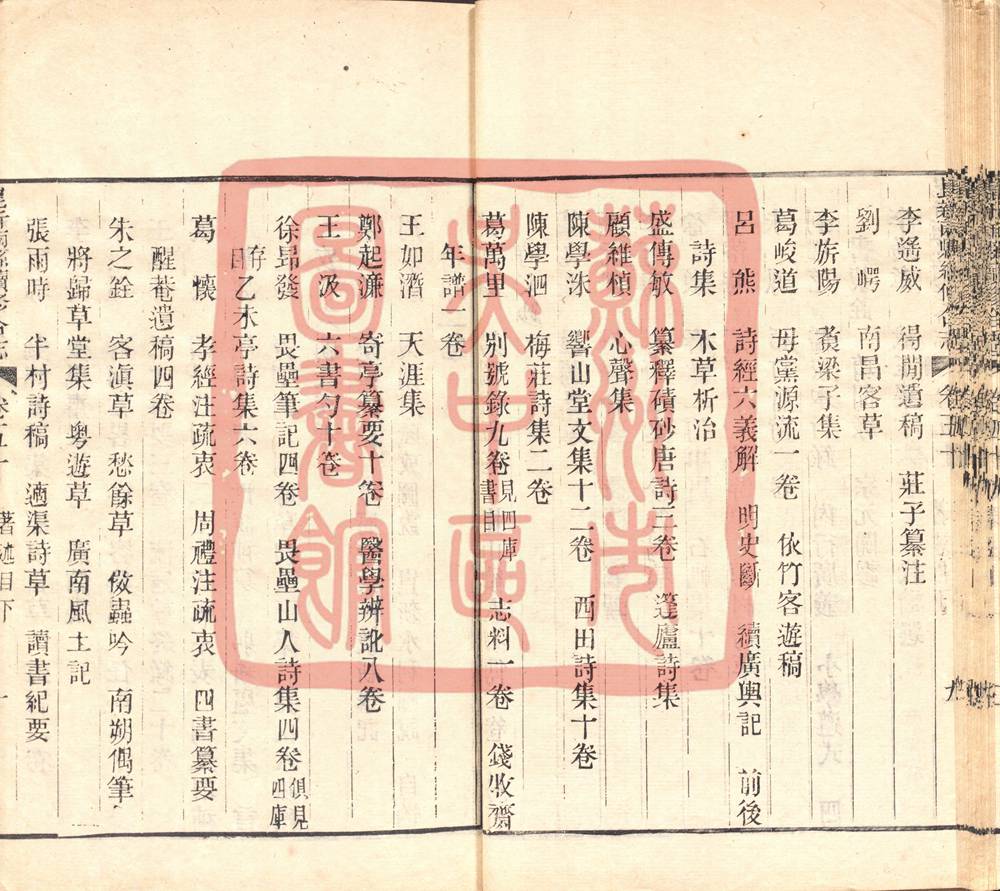 李遥威　得閒遺稿　莊子纂注
劉　崿　南昌客草
李旂陽　黃粱子集
葛峻道　母黨源流一卷　依竹客遊稿
呂　熊　詩經六義解　明史斷　續廣輿記　前後
詩集　本草析治
盛傳敏　纂釋磧砂唐詩三卷　篷廬詩集
顧維楨　心聲集
陳學洙　響山堂文集十二卷　西田詩集十卷
陳學泗　梅莊詩集二卷
葛萬里　別號錄九卷見四庫書目　志料一卷　錢牧齋
年譜一卷
王如濳　天涯集
鄭起濂　寄亭纂要十卷　醫學辨訛八卷
王　汲　六書勺十卷
徐昂發　畏壘筆記四卷　畏壘山人詩集四卷俱見四庫
存目　乙未亭詩集六卷
葛　懷　孝經注疏衷　周禮注疏衷　四書纂要
醒菴遺稿四卷
朱之銓　客滇草　愁餘草　傚蟲吟　南朔偶筆
將歸草堂集　粵遊草　廣南風土記
張雨時　半村詩稿　適渠詩草　讀書紀要
卷五十　著述目下
蘇州市
文廿區
圖書館